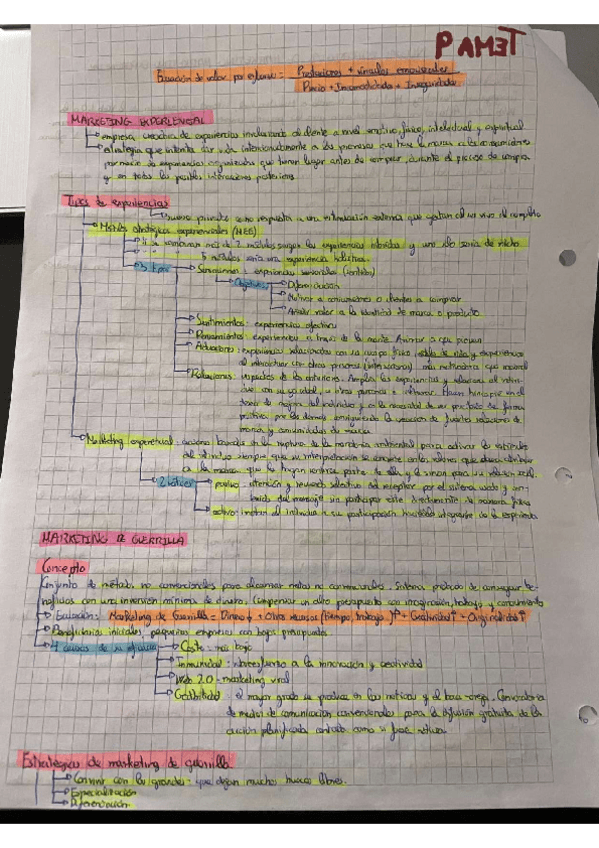 PAMET
Ecuación de valor por esfuerzo = Prestaciones + vínculos emocionales
Precio + Incomodidades + Inseguridades
MARKETING EXPERIENCIAL
empresa creadora de experiencias involucrando al cliente a nivel emotivo, físico, intelectual y espiritual
estrategia que intenta dar vida intencionadamente a las promesas que hace la marca a los consumidores
por medio de experiencias organizadas que tienen lugar antes de comprar, durante el proceso de compra
y en todas las posibles interacciones posteriores
Tipos de experiencias
suceso privado como respuesta a una estimulación externa que afectan al ser vivo al completo
Módulos estratégicos experienciales (MEE)
Si se combinan más de 2 módulos surgen las experiencias híbridas y
5 módulos sería una experiencia holística.
5 tipos
Sensaciones: experiencias sensoriales (sentidos)
Objetivos
Diferenciación
Motivar a consumidores o clientes a comprar
Añadir valor a la identidad de marca o producto
Sentimientos: experiencias afectivas
Pensamientos: experiencias a través de la mente. Animar a que piensen
Actuaciones: experiencias relacionadas con su cuerpo físico, estilos de vida y experiencias
al interactuar con otras personas
Relaciones: impactos de los anteriores. Amplía las experiencias y relaciona al individuo
con su yo ideal, u otras personas o culturas. Hacen hincapié en el
deseo de mejora del individuo y a la necesidad de ser percibido de forma
positiva por los demás consiguiendo la creación de fuertes relaciones de
marca y comunidades de marca
Marketing experiencial: acciones basadas en la ruptura de la monotonía ambiental para activar los estímulos
del individuo siempre que su interpretación se conecte con los valores que desea atribuir
a la marca, que le hagan sentirse parte de ella y le sirvan para un
2 tácticas
pasivo: atención y recuerdo selectivo del receptor por el sistema usado y con-
tenido del mensaje sin participar este directamente de manera física
activo: invitan al individuo a su participación haciéndole integrante de la experiencia
MARKETING DE GUERRILLA
Concepto
Conjunto de métodos no convencionales para alcanzar metas no convencionales. Sistema probado de conseguir be-
neficios con una inversión mínima de dinero. Compensar un bajo presupuesto con imaginación, trabajo y conocimiento
Ecuación: Marketing de Guerrilla = Dinero↓ + Otros recursos (tiempo, trabajo...)↑ + Creatividad↑ + Originalidad↑
Beneficiarios iniciales: pequeñas empresas con bajos presupuestos.
4 causas de su eficacia
Coste: más bajo
Inmunidad: sobreesfuerzo a la innovación y creatividad
Web 2.0 - marketing viral
Credibilidad: el mayor grado se produce en las noticias y el boca-oreja. Convocatoria
de medios de comunicación convencionales para la difusión gratuita de la
acción planificada contada como si fuese noticia.
Estrategias de marketing de guerrilla
Convivir con los grandes: que dejan muchos huecos libres.
Especialización
Diferenciación